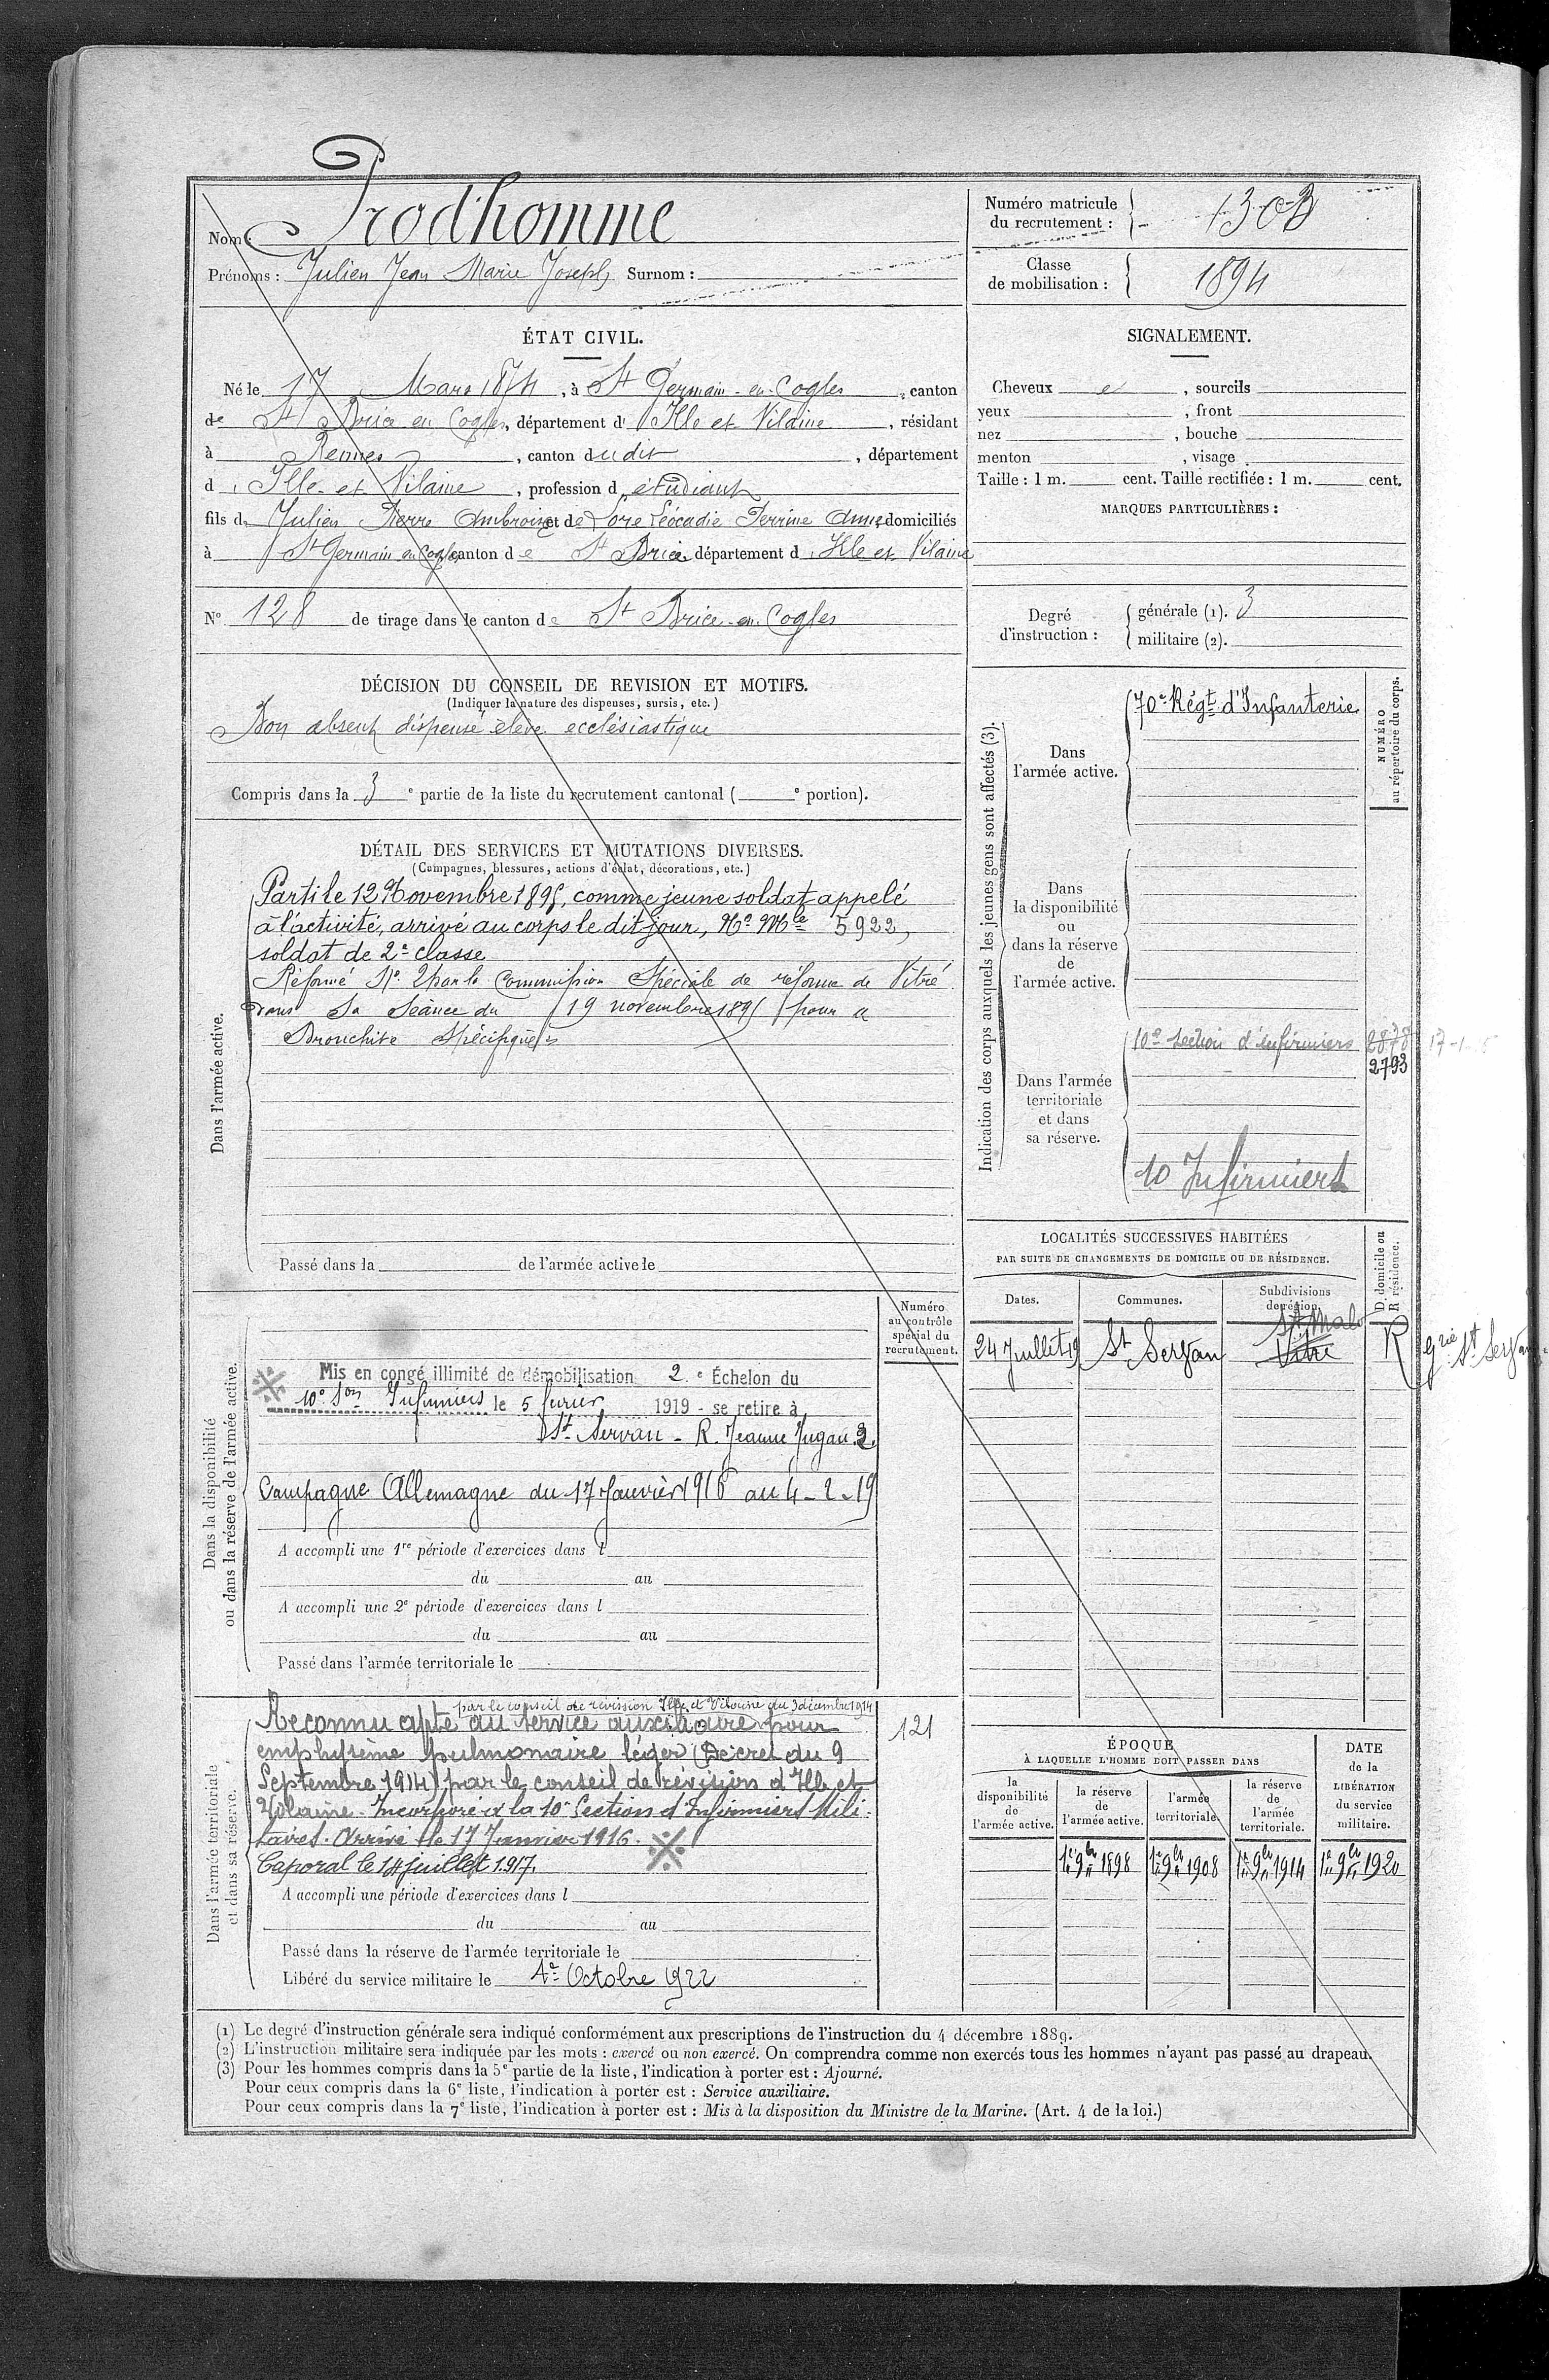 Nom : Prod'homme
Prénoms : Julien Jean Marie Joseph Surnom :
Numéro matricule
du recrutement : 1303
Classe
de mobilisation : 1894
ÉTAT CIVIL.
Né le 17 Mars 1874, à St Germain-en-Cogles, canton
de St Brice en Cogles, département d' Ille et Vilaine, résidant
à Rennes, canton dudit, département
d' Ille-et-Vilaine, profession d'étudiant
fils de Julien Pierre Ambroise et de Lore Léocadie Perrine Anne, domiciliés
à St Germain en Cogles, canton de St Brice, département d' Ille et Vilaine
N° 128 de tirage dans le canton de St Brice-en-Cogles
SIGNALEMENT.
Cheveux et, sourcils
yeux , front
nez , bouche
menton , visage
Taille : 1 m. cent. Taille rectifiée : 1 m. cent.
MARQUES PARTICULIÈRES :
Degré
d'instruction :
générale (1). 3
militaire (2).
DÉCISION DU CONSEIL DE REVISION ET MOTIFS.
(Indiquer la nature des dispenses, sursis, etc.)
Bon absent dispensé élève ecclésiastique
Compris dans la 3e partie de la liste du recrutement cantonal ( e portion).
DÉTAIL DES SERVICES ET MUTATIONS DIVERSES.
(Campagnes, blessures, actions d'éclat, décorations, etc.)
Dans l'armée active.
Parti le 12 Novembre 1895, comme jeune soldat appelé
à l'activité, arrivé au corps le dit jour, No Mle 5922,
soldat de 2e classe
Réformé No 2 par la Commission Spéciale de réforme de Vitré
dans sa séance du 19 novembre 1895 pour
Bronchite Spécifique
Passé dans la de l'armée active le
Indication des corps auxquels les jeunes gens sont affectés (3).
NUMÉRO
au répertoire du corps.
Dans
l'armée active.
70e Régt d'Infanterie
Dans
la disponibilité
ou
dans la réserve
de
l'armée active.
Dans l'armée
territoriale
et dans
sa réserve.
10e Section d'infirmiers 2878
2793
10 Infirmiers
LOCALITÉS SUCCESSIVES HABITÉES
PAR SUITE DE CHANGEMENTS DE DOMICILE OU DE RÉSIDENCE.
Dates. Communes. Subdivisions
de région.
D. domicile ou
R. résidence.
St Malo
24 Juillet 19 St Servan Vitré R
Numéro
au contrôle
spécial du
recrutement.
Dans la disponibilité
ou dans la réserve de l'armée active.
Mis en congé illimité de démobilisation 2e Échelon du
10e Son Infirmiers le 5 février 1919 - se retire à
St Servan - R. Jeanne Jugan. 2.
Campagne Allemagne du 17 Janvier 1916 au 4-2-19
A accompli une 1re période d'exercices dans l
du au
A accompli une 2e période d'exercices dans l
du au
Passé dans l'armée territoriale le
Dans l'armée territoriale
et dans sa réserve.
par le conseil de révision Ille et Vilaine du 3 décembre 1914
Reconnu apte au service auxiliaire pour 121
emphysème pulmonaire léger (Décret du 9
Septembre 1914) par le conseil de révision d'Ille et
Vilaine. Incorporé à la 10e Section d'Infirmiers Mili-
taires. Arrivé le 17 Janvier 1916.
Caporal le 14 juillet 1917.
A accompli une période d'exercices dans l
du au
Passé dans la réserve de l'armée territoriale le
Libéré du service militaire le 1er Octobre 1922
ÉPOQUE
À LAQUELLE L'HOMME DOIT PASSER DANS
DATE
de la
LIBÉRATION
du service
militaire.
la
disponibilité
de
l'armée active.
la réserve
de
l'armée active.
l'armée
territoriale.
la réserve
de
l'armée
territoriale.
1er 9bre 1898 1er 9bre 1908 1er 9bre 1914 1er 9bre 1920
(1) Le degré d'instruction générale sera indiqué conformément aux prescriptions de l'instruction du 4 décembre 1889.
(2) L'instruction militaire sera indiquée par les mots : exercé ou non exercé. On comprendra comme non exercés tous les hommes n'ayant pas passé au drapeau.
(3) Pour les hommes compris dans la 5e partie de la liste, l'indication à porter est : Ajourné.
Pour ceux compris dans la 6e liste, l'indication à porter est : Service auxiliaire.
Pour ceux compris dans la 7e liste, l'indication à porter est : Mis à la disposition du Ministre de la Marine. (Art. 4 de la loi.)